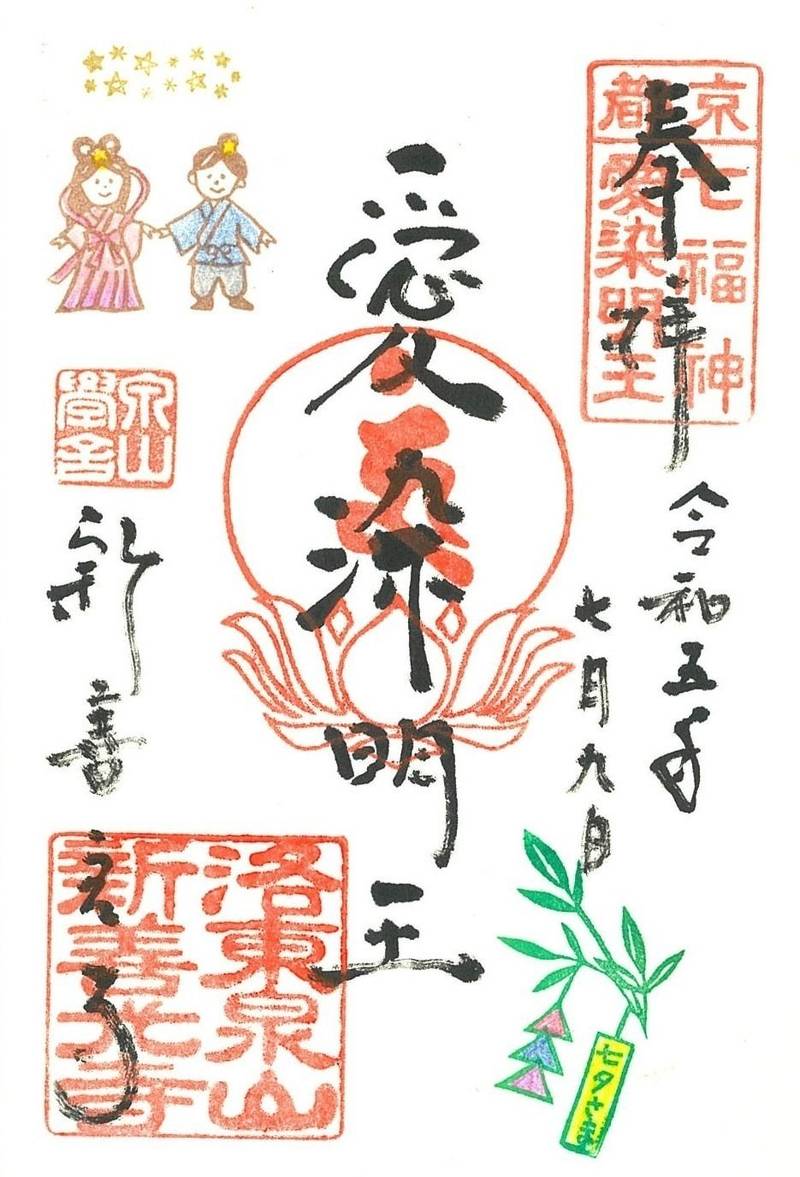 奉拝
京都
七福神
愛染明王
令和五年
七月九日
愛染明王
泉山
學舎
新善光寺
洛東泉山
新善光寺
七夕さま